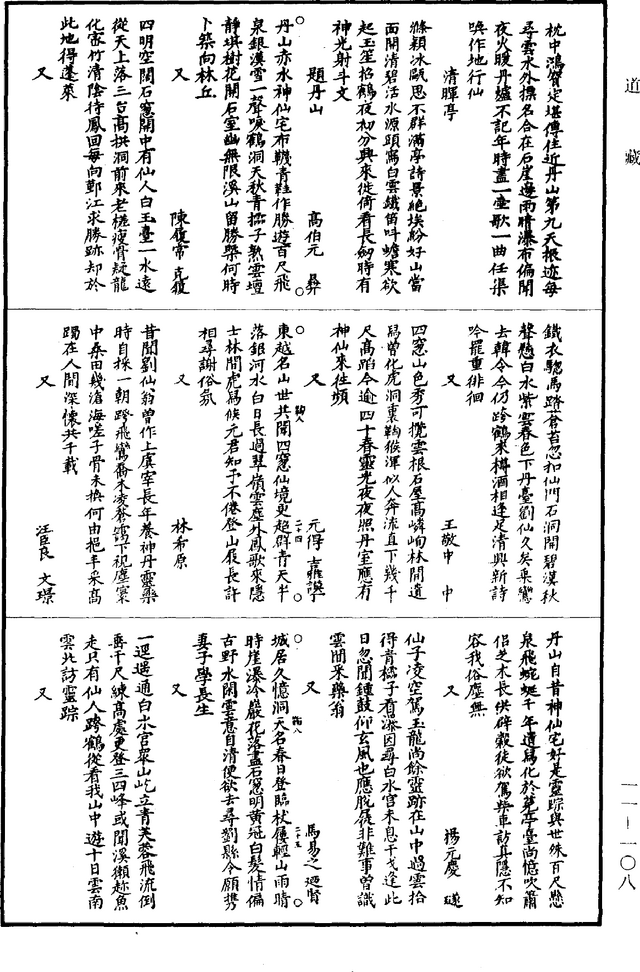 道藏
枕中鴻寶定堪傳住近丹山第九天振迹每
尋雲水外撰名合在石崖邊雨晴瀑布偏聞
夜火暖丹爐不記年時盡一壷歌一曲任渠
喚作地行仙
清暉亭
滌穎冰甌思不群滿亭詩景絶埃紛好山當
面開清碧活水源頭寫白雲鐵笛呌蟾寒欲
起玉笙招鶴夜初分興來徙倚看長劒時有
神光射斗文
題丹山
高伯元 彝
丹山赤水神仙宅布韈青鞋作勝遊百尺飛
泉銀漢雪一聲唳鶴洞天秋青𣝛子熟雲壇
靜琪樹花開石室幽無限溪山留勝槩何時
卜築向林丘
又
陳履常 克履
四明空闊石窓開中有仙人白玉臺一水遠
從天上落三台高拱洞前來老槎瘦骨疑龍
化密竹清陰待鳳回每向鄞江求勝跡却於
此地得蓬萊
又
鐵衣驄馬踏蒼苔忽扣仙門石洞開碧漢秋
聲懸白水紫雲春色下丹臺劉仙久矣乗鸞
去韓令今仍跨鶴來樽酒相逢足清興新詩
吟罷重徘徊
又
王敬中 中
四窓山色秀可攬雲根石屋高嶙峋林間道
爲曾化虎洞裏鞠猴渾似人奔流直下幾千
尺高蹈今逾四十春靈光夜夜照丹室應有
神仙來往頻
又
元得 吉雅謨丁
東越名山世共聞四窓仙境更超群青天半
落銀河水白日長過翠嶺雲塵外鳳歌來隱
士林間虎爲候元君知予不倦登山屐長許
相尋謝俗氛
又
林希原
昔聞劉仙翁曾作上虞宰長年養神丹靈藥
時自採一朝跨飛鸞喬木凌蒼靄下視塵寰
中桑田幾滄海嗟子骨未換何由挹丰采高
躅在人間深懷共千載
又
汪臣良 文璟
丹山自昔神仙宅好是靈踪與世殊百尺懸
泉飛蜿蜒千年遺舄化於菟亭臺尚憶吹簫
侣芝术長供辟糓徒欲駕柴車訪真隱不知
容我俗塵無
又
楊元慶 璲
仙子凌空駕玉龍尚餘靈跡在山中過雲拾
得青𣝛子看瀑因尋白水宫未息干戈逢此
日忽聞鍾鼓仰玄風也應脫屣非難事曾識
雲間采藥翁
又
馬易之 迺賢
城居久憶洞天名春日登臨杖屨輕山雨晴
時崖瀑冷巖花落盡石窓明黄冠白髮情偏
古野水閑雲意自清便欲去尋劉縣令願携
妻子學長生
又
一逕遥通白水宫衆山屹立青芙蓉飛流倒
垂千尺練高處更登三四峰或聞溪獺趂魚
走只有仙人跨鶴從看我山中遊十日雲南
雲北訪靈踪
又
一一-一〇八